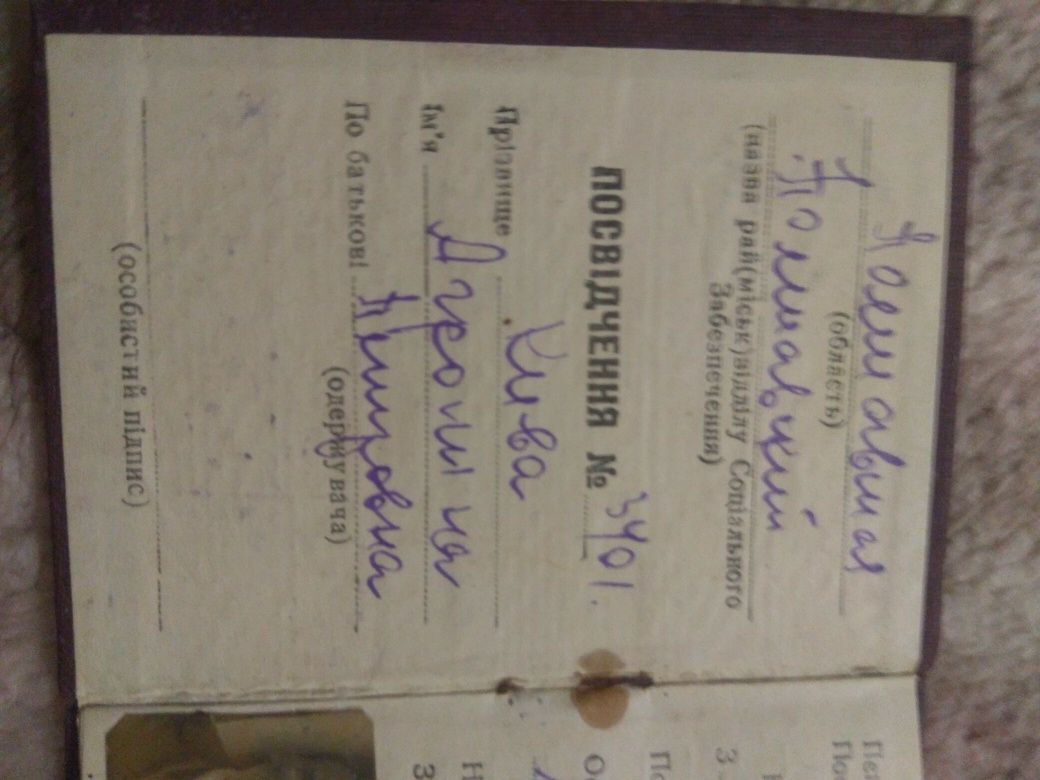 Полтавская
(область)
Полтавский
(назва рай(міськ)відділу Соціального
Забезпечення)
ПОСВІДЧЕННЯ № 3401.
Прізвище Клева
Ім'я
По батькові Петровна
(одержувача)
(особистий підпис)